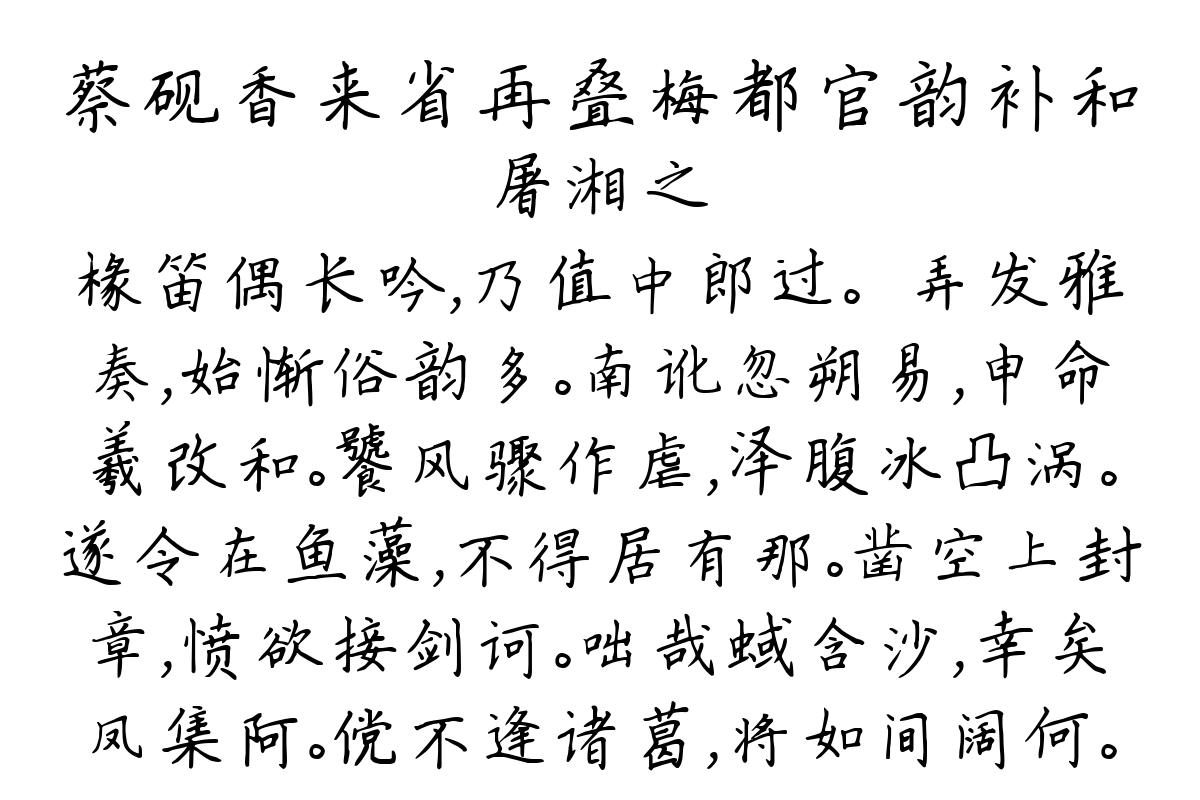 蔡砚香来省再叠梅都官韵补和
屠湘之
椽笛偶长吟,乃值中郎过。弄发雅
奏,始惭俗韵多。南讹忽朔易,申命
羲改和。饕风骤作虐,泽腹冰凸涡。
遂令在鱼藻,不得居有那。凿空上封
章,愤欲接剑诃。咄哉蜮含沙,幸矣
凤集阿。傥不逢诸葛,将如间阔何。